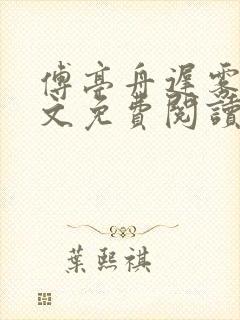 傅亭舟遲霧
文免費閱讀
葉熙祺